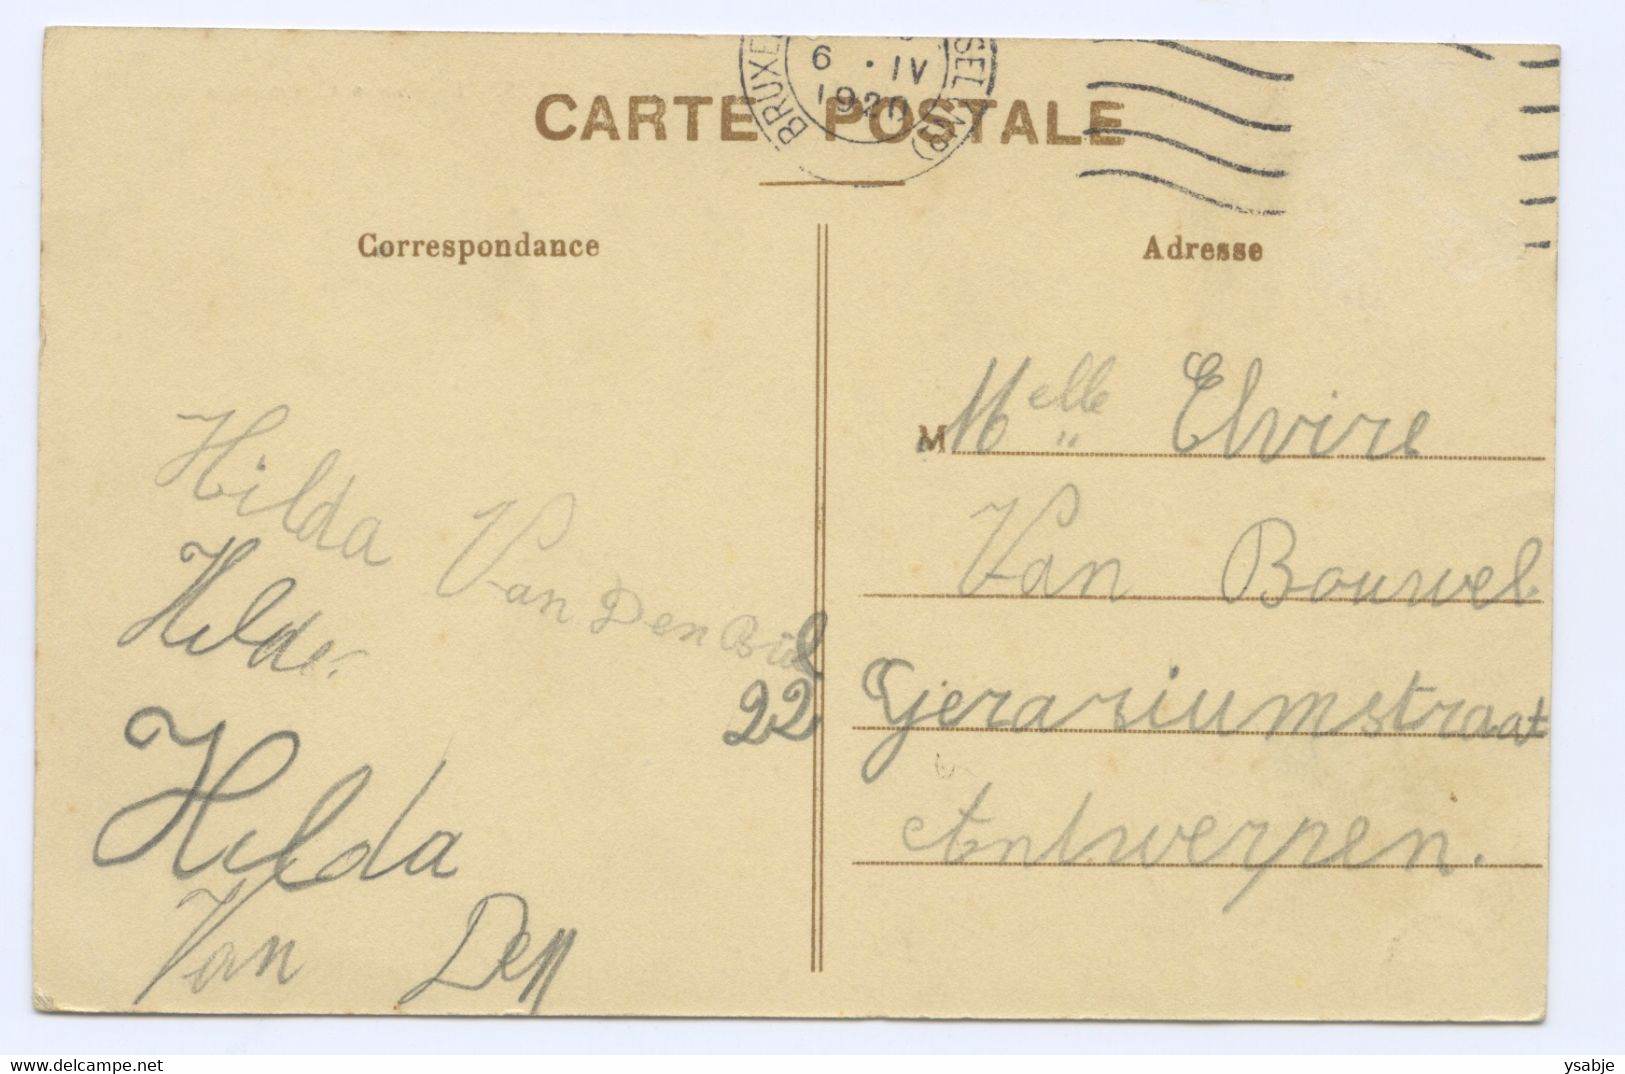 BRUXE
SEL (NB)
6 . IV
1920
CARTE POSTALE
Correspondance
Adresse
Hilda Van Den Bûl
Hilda
22
Hilda
Van Den
M Melle Elvire
Van Bouwel
Gerariumstraat
Antwerpen.
www.delcampe.net
ysabje